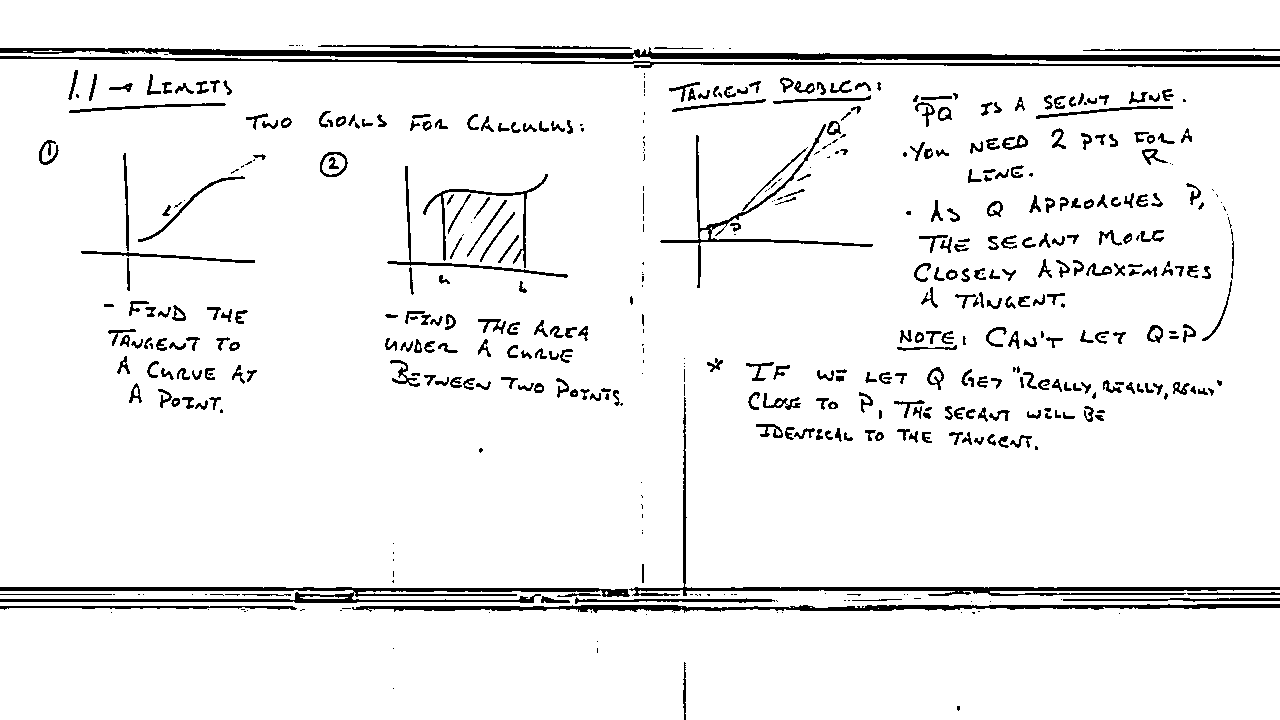 1.1 → LIMITS
TWO GOALS FOR CALCULUS:
①
②
a b
- FIND THE
TANGENT TO
A CURVE AT
A POINT.
- FIND THE AREA
UNDER A CURVE
BETWEEN TWO POINTS.
TANGENT PROBLEM:
Q
P
"PQ" IS A SECANT LINE.
• YOU NEED 2 PTS FOR A
LINE.
• AS Q APPROACHES P,
THE SECANT MORE
CLOSELY APPROXIMATES
A TANGENT.
NOTE: CAN'T LET Q=P
* IF WE LET Q GET "REALLY, REALLY, REALLY"
CLOSE TO P, THE SECANT WILL BE
IDENTICAL TO THE TANGENT.